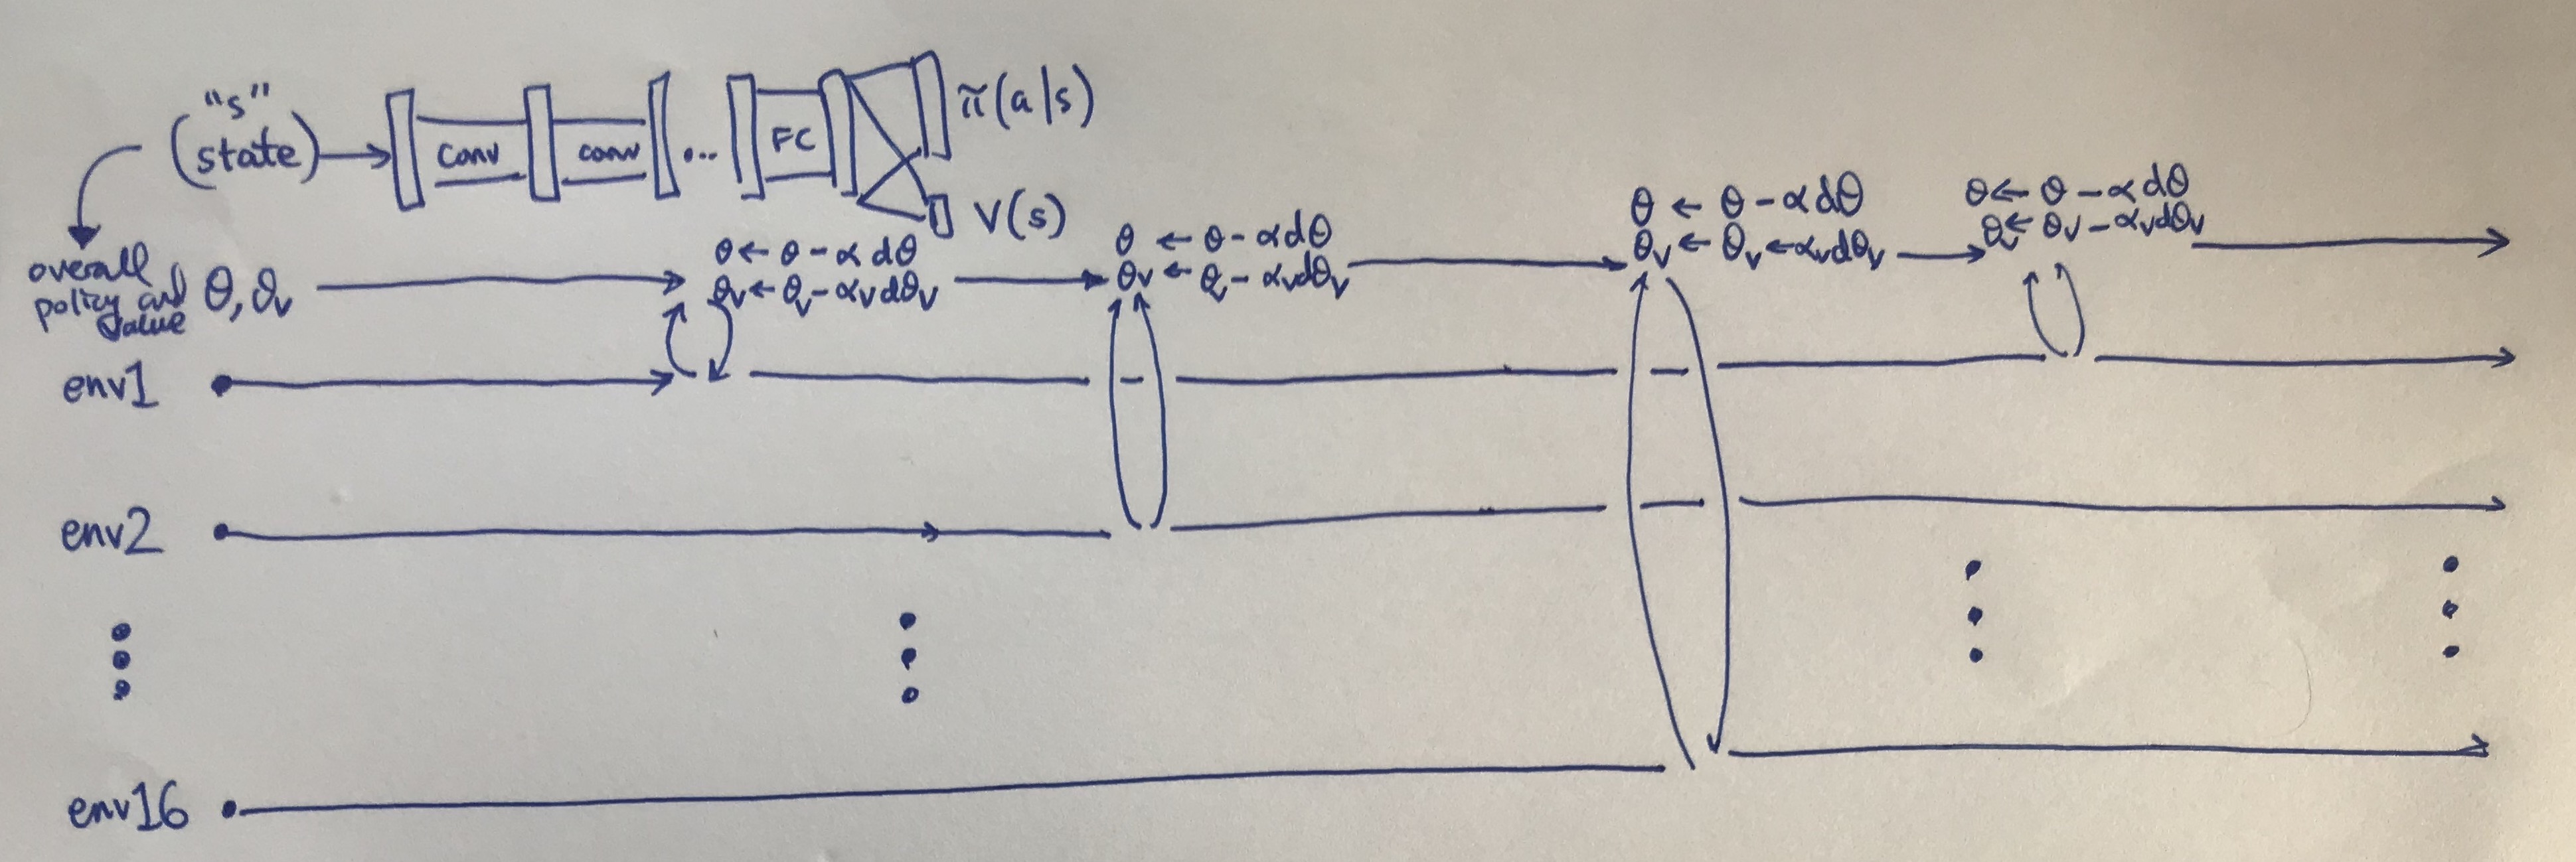 "s"
(state)
conv
conv
...
FC
π(a|s)
V(s)
overall
policy and
value
θ, θv
θ ← θ - α dθ
θv ← θv - αv dθv
θ ← θ - α dθ
θv ← θv - αv dθv
θ ← θ - α dθ
θv ← θv ← αv dθv
θ ← θ - α dθ
θv ← θv - αv dθv
env1
env2
env16